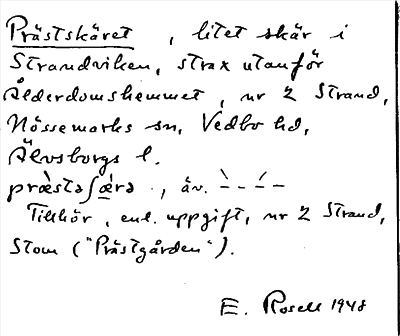 Prästskäret, litet skär i
Strandviken, strax utanför
Ålderdomshemmet, nr 2 Strand,
Nössemarks sn, Vedbo hd,
Älvsborgs l.
præ̀stəʃæ̀rə ., äv. –̀ – –́ –
Tillhör, enl. uppgift, nr 2 Strand,
Stom ("Prästgården").
E. Rosell 1948